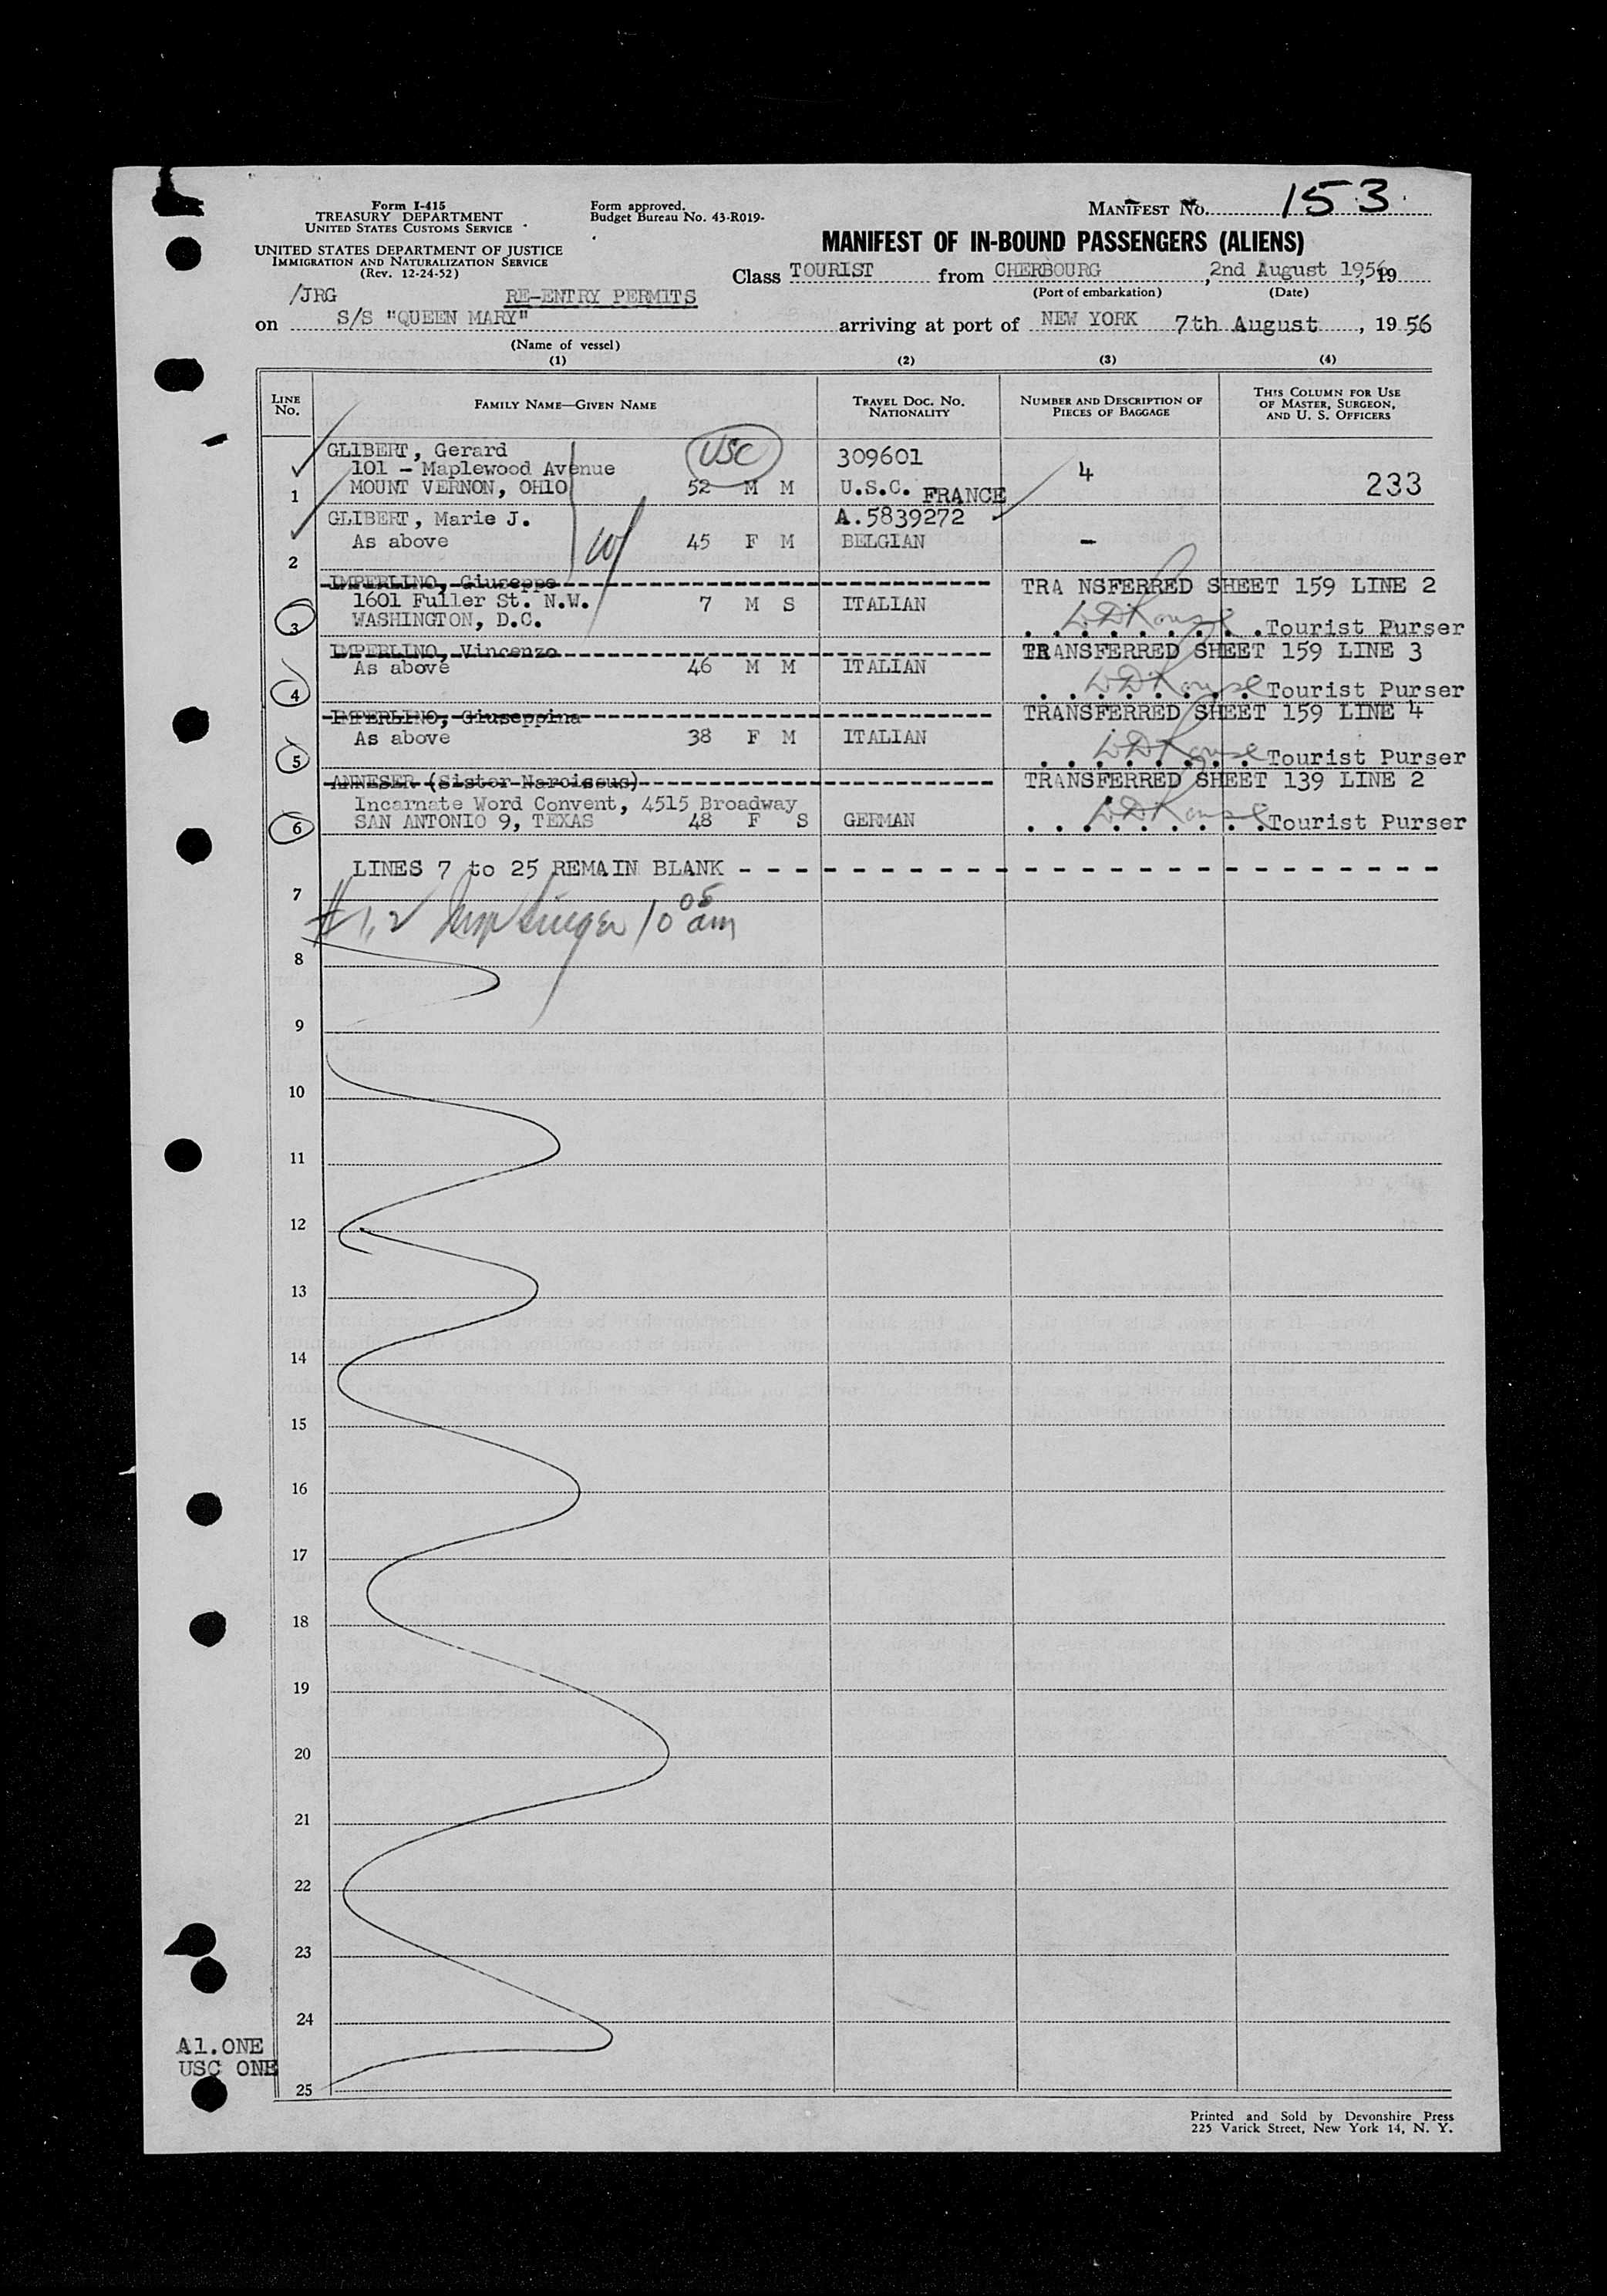 Form I-415
TREASURY DEPARTMENT
UNITED STATES CUSTOMS SERVICE
UNITED STATES DEPARTMENT OF JUSTICE
IMMIGRATION AND NATURALIZATION SERVICE
(Rev. 12-24-52)
Form approved.
Budget Bureau No. 43-R019-
MANIFEST No. 153
MANIFEST OF IN-BOUND PASSENGERS (ALIENS)
Class TOURIST from CHERBOURG, 2nd August 1956, 19
(Port of embarkation) (Date)
/JRG RE-ENTRY PERMITS
on S/S "QUEEN MARY" arriving at port of NEW YORK 7th August, 19 56
(Name of vessel)
(1) (2) (3) (4)
LINE No. FAMILY NAME—GIVEN NAME TRAVEL DOC. No. NATIONALITY NUMBER AND DESCRIPTION OF PIECES OF BAGGAGE THIS COLUMN FOR USE OF MASTER, SURGEON, AND U. S. OFFICERS
GLIBERT, Gerard USC 309601
101 - Maplewood Avenue 4
1 MOUNT VERNON, OHIO 52 M M U.S.C. FRANCE 233
GLIBERT, Marie J. A.5839272
As above 45 F M BELGIAN -
2
IMPERLINO, Giuseppe TRA NSFERRED SHEET 159 LINE 2
1601 Fuller St. N.W. 7 M S ITALIAN
3 WASHINGTON, D.C. Tourist Purser
IMPERLINO, Vincenzo TRANSFERRED SHEET 159 LINE 3
As above 46 M M ITALIAN
4 Tourist Purser
IMPERLINO, Giuseppina TRANSFERRED SHEET 159 LINE 4
As above 38 F M ITALIAN
5 Tourist Purser
ANNESER (Sister Narcissus) TRANSFERRED SHEET 139 LINE 2
Incarnate Word Convent, 4515 Broadway
6 SAN ANTONIO 9, TEXAS 48 F S GERMAN Tourist Purser
LINES 7 to 25 REMAIN BLANK
7
# 1, 2 10 05 am
8
9
10
11
12
13
14
15
16
17
18
19
20
21
22
23
24
Al.ONE
USC ONE
25
Printed and Sold by Devonshire Press
225 Varick Street, New York 14, N. Y.